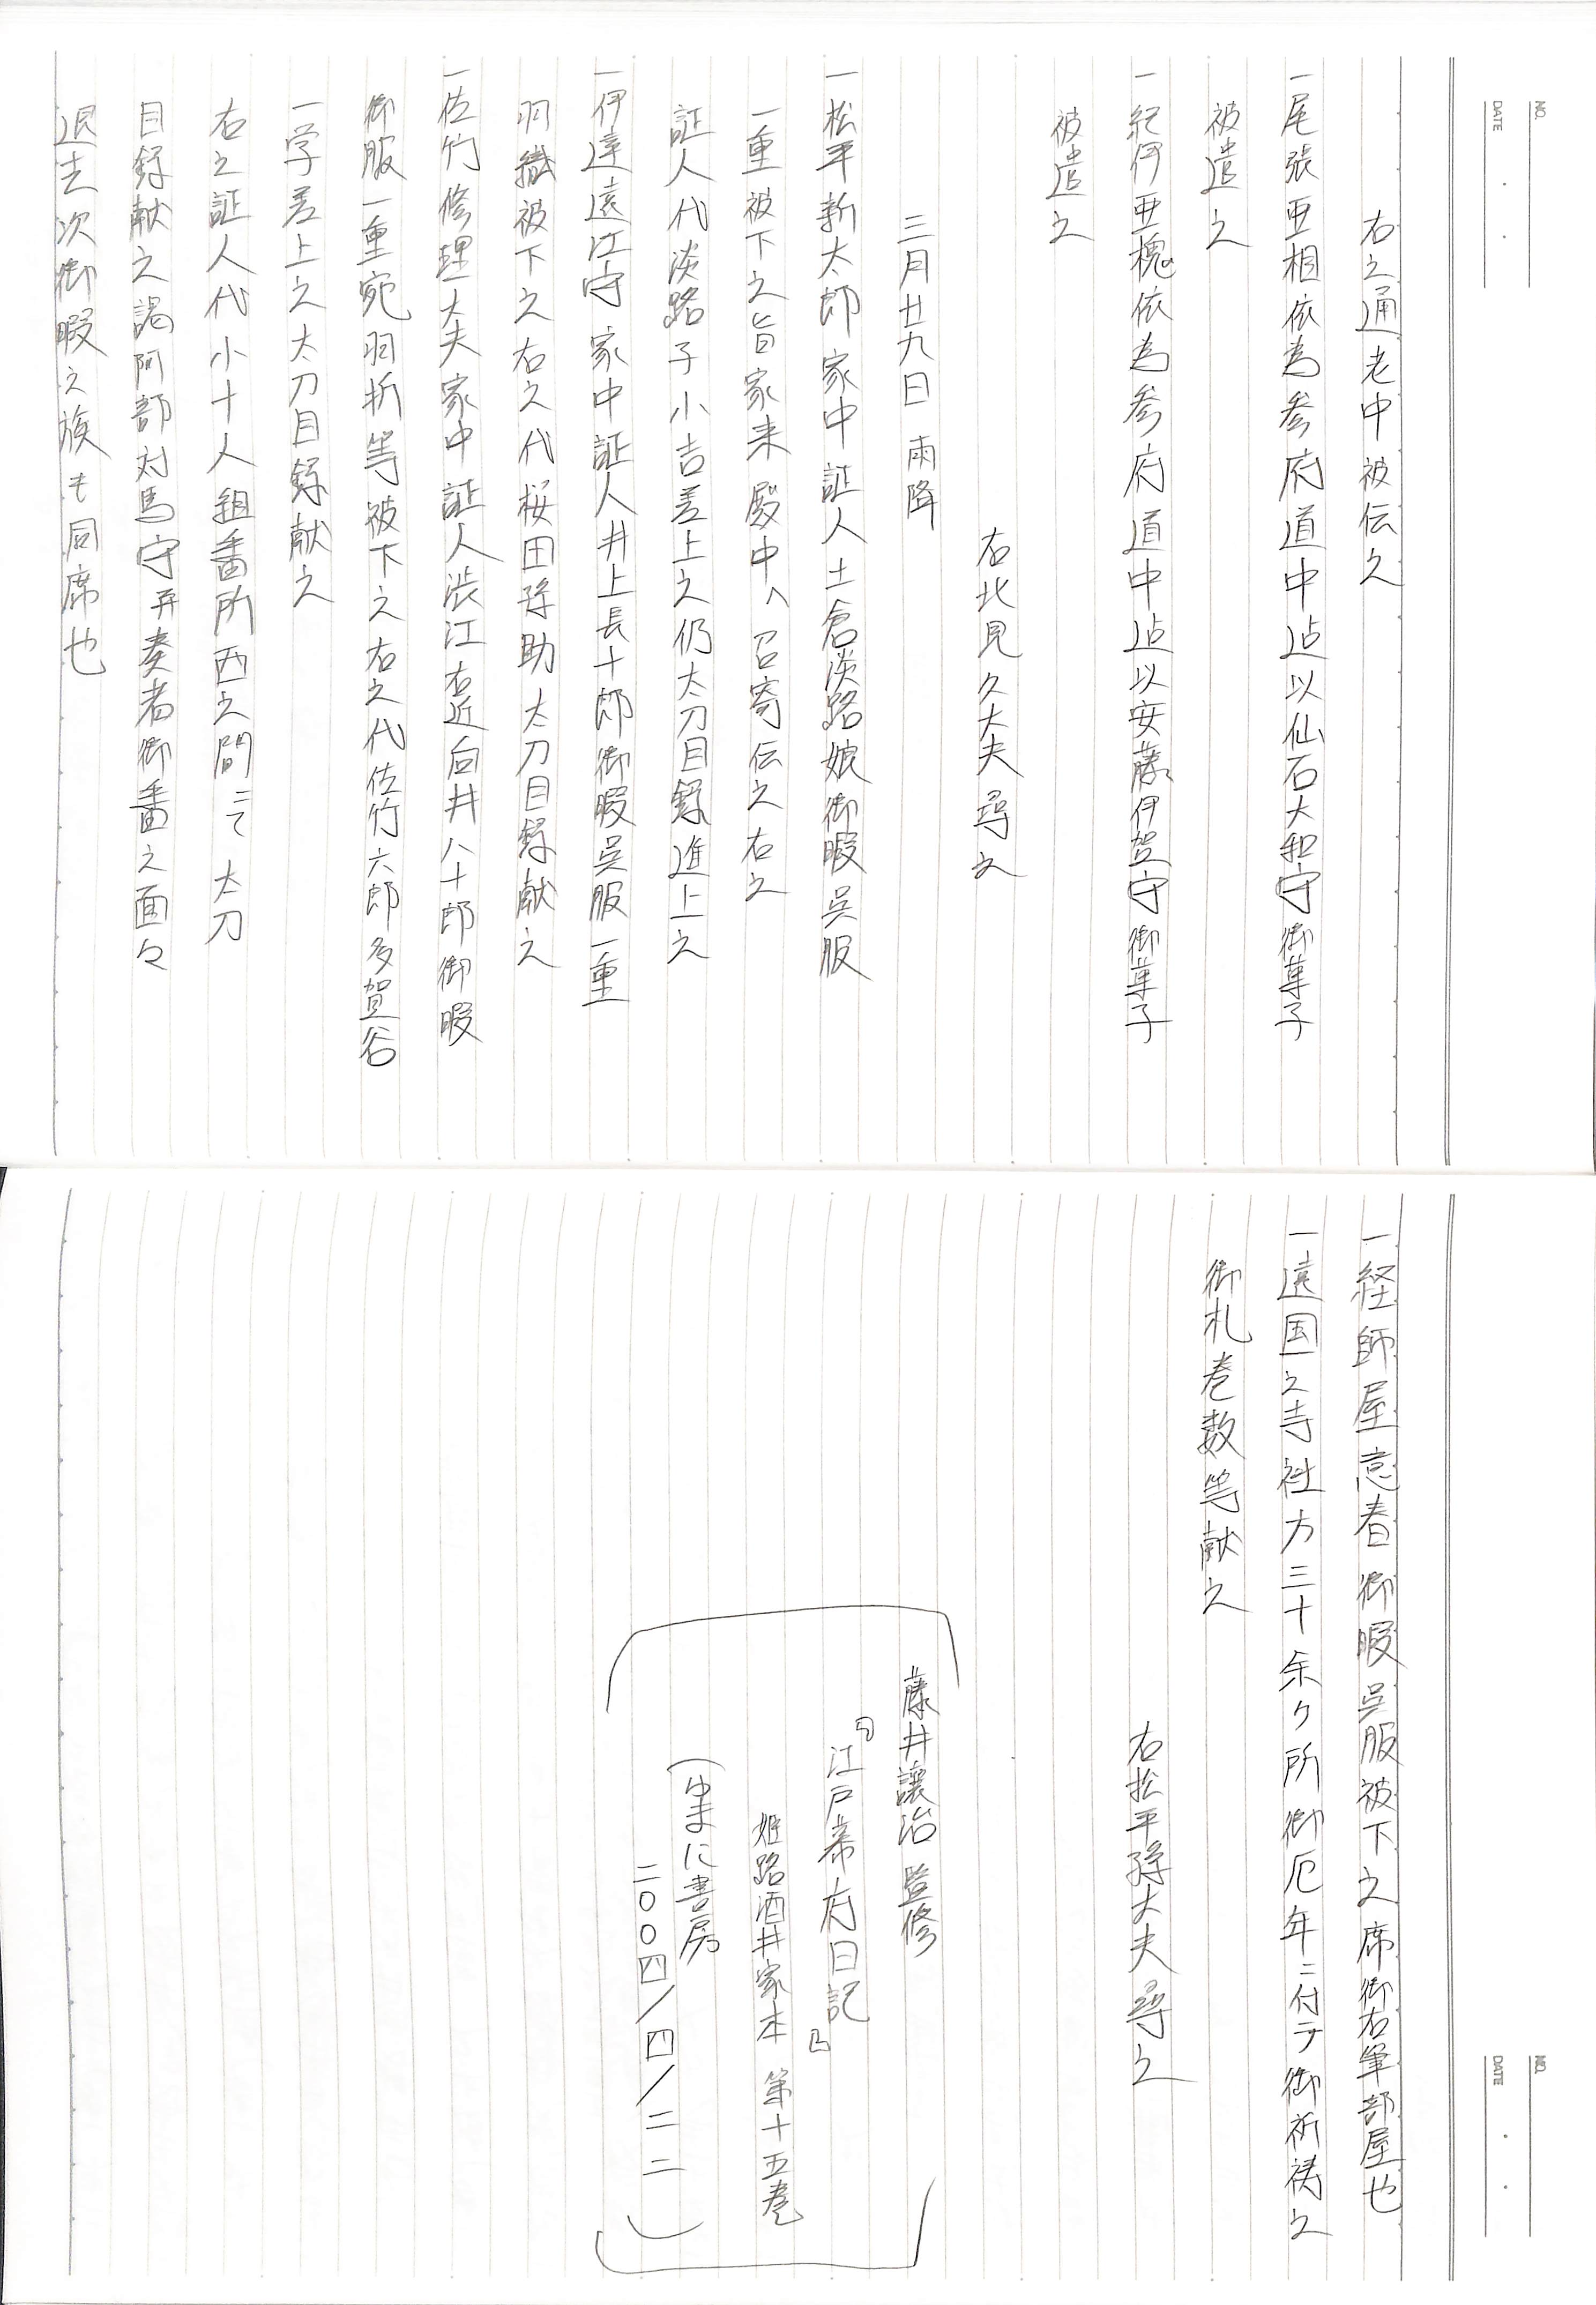 NO.
DATE
右之通老中被伝之
一尾張亜相依為参府道中迠以仙石大和守御菓子
被遣之
一紀伊亜槐依為参府道中迠以安藤伊賀守御菓子
被遣之
右北見久大夫尋之
三月廿九日 雨降
一松平新太郎家中証人土倉淡路娘御暇呉服
一重被下之旨家来殿中へ召寄伝之右之
証人代淡路子小吉差上之仍太刀目録進上之
一伊達遠江守家中証人井上長十郎御暇呉服一重
羽織被下之右之代桜田孫助太刀目録献之
一佐竹修理大夫家中証人渋江右近向井八十郎御暇
御服一重宛羽折等被下之右之代佐竹六郎多賀谷
一学差上之太刀目録献之
右之証人代小十人組番所西之間ニて太刀
目録献之謁阿部対馬守并奏者御番之面々
退去次御暇之族も同席也
NO.
DATE
一経師屋意春御暇呉服被下之席御右筆部屋也
一遠国之寺社方三十余ケ所御厄年ニ付テ御祈祷之
御札巻数等献之
右松平孫大夫尋之
藤井讓治 監修
『江戸幕府日記』
姫路酒井家本 第十五巻
(ゆまに書房
二〇〇四/四/二二)